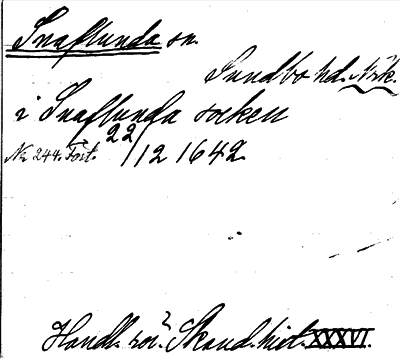 Snaflunda sn.
Sundbo hd. Närk.
i Snaflunga socken
No 244. Fört. 22/12 1642.
Handl. rör. Skand. hist. XXXVI.